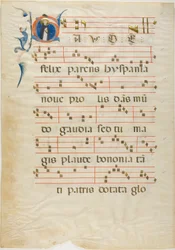 GAUDE
felix parens hyspania
noue prolis dans mu
do gaudia sed tu ma
gis plaude bononia ta
ti patris dotata glo